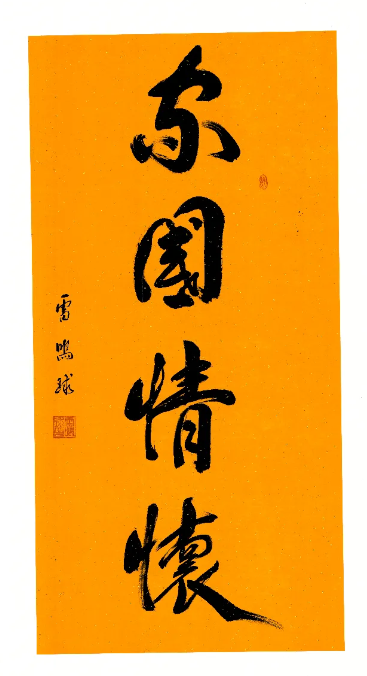 家國情懷
雷鸣球